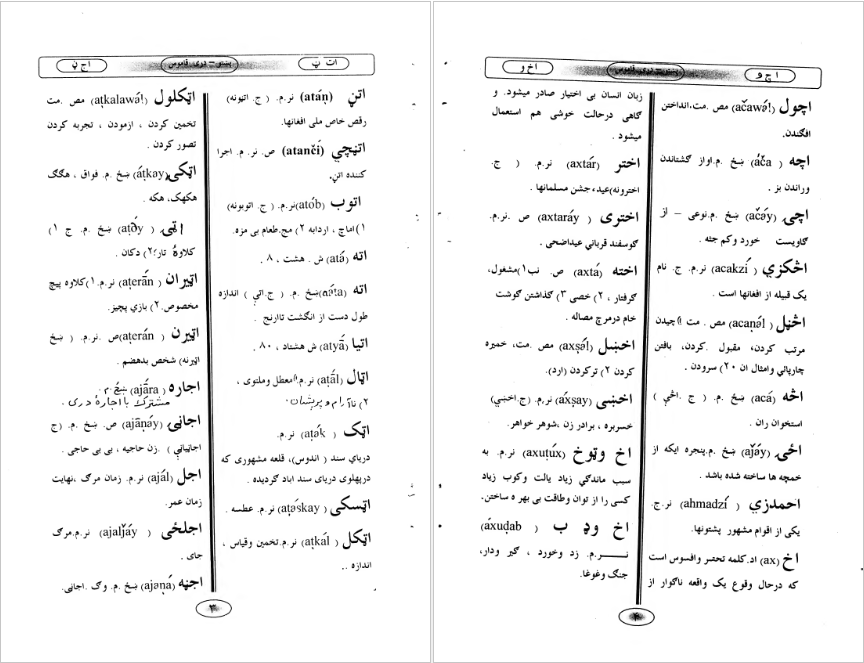 ات ټ
پښتو – دری قاموس
اج ن
اتڼ (atáṇ) نر.م. ( ج. اتڼونه)
رقص خاص ملی افغانها.
اتڼچي (atančí) ص. نر. م. اجرا
کننده اتن.
اتوب (atób)نر.م. ( ج. اتوبونه)
۱)اماچ ، اردابه ۲) مج.طعام بی مزه.
اته (atá) ش . هشت ، ۸ .
اته (áta)ښځ .م. ( ج.اتې ) اندازه
طول دست از انگشت تاارنج .
اتیا (atyā́) ش هشتاد ، ۸۰ .
اټال (aṭā́l) نر.م.۱)معطل وملتوی ،
۲) ناآرام و پریشان.
اټک (aṭák ) نر.م.
دریای سند ( اندوس)، قلعه مشهوری که
درپهلوی دریای سند اباد گردیده .
اټسکی (aṭəskay) نر.م. عطسه .
اټکل (aṭkál ) نر.م.تخمین وقیاس ،
اندازه ..
اټکلول (aṭkalawə́l) مص .مت
تخمین کردن ، ازمودن ، تجربه کردن
تصور کردن .
اټکی (áṭkəy) ښځ .م. فواق ، هګګ
هکهک، هکه .
اټۍ (aṭə́y) ښځ .م. ج ۱)
کلاوۀ تار۲) دکان .
اټېران (aṭerā́n) نر.م.۱)کلاوه پیچ
مخصوص.۲) بازي پچیز.
اټېرن (aṭerán)ص .نر.م. ( ښځ
اټېرنه) شخص بدهضم .
اجاره (ajāra) ښځ.م.
مشترک با اجارهٔ دری .
اجاڼی (ajāṇáy) ص. ښځ .م. (ج
اجاڼیاني ) .زن حاجیه ، بی بی حاجی .
اجل (ajál) نر.م. زمان مرگ ،نهایت
زمان عمر.
اجلځی (ajaljáy) نر.م.مرگ
جای .
اجڼه (ajəṇá) ښځ .م. وګ .اجاڼۍ.
۳
ا چ و
پښتو – دری قاموس
اخ و
اچول (ačawə́l) مص .مت.انداختن
افگندن.
اچه (áča ) ښځ .م.اواز گشتاندن
وراندن بز .
اچۍ (ačə́y) ښځ .م.نوعی – از
گاوپست خورد وکم جثه .
اڅکزي (acakzí ) نر.م. ج. نام
یک قبیله از افغانها است .
اڅڼل (acaṇə́l ) مص . مت ۱)چیدن
مرتب کردن، مقبول .کردن، بافتن
چارپائي وامثال ان ۲۰) سرودن .
اڅه (acá) ښځ .م. ( ج .اڅې )
استخوان ران .
اځی (ajə́y) ښځ .م.پنجره ایکه از
خمچه ها ساخته شده باشد .
احمدزي (ahmadzí ) نر.ج.
یکی از اقوام مشهور پشتونها.
اخ (ax) اد.کلمه تحسر وافسوس است
که درحال وقوع یک واقعه ناگوار از
زبان انسان بی اختیار صادر میشود. و
گاهی درحالت خوشی هم استعمال
میشود .
اختر (axtár) نر.م. ( ج.
اخترونه)عید،جشن مسلمانها .
اختری ( axtaráy) ص .نر.م.
گوسفند قربانی عیداضحی .
اخته (axtá) ص. نب۱)مشغول،
گرفتار ، ۲) خصی ۳) گذاشتن گوشت
خام درمرچ مصاله .
اخښل (axṣə́l) مص .مت، خمیره
کردن ۲) ترکردن (ارد).
اخښی (áxṣay) نر.م. (ج.اخښي)
خسربره ، برادر زن ،شوهر خواهر.
اخ وټوخ (axuṭúx) نر.م. به
سبب ماندگی زیاد یالت وکوب زیاد
کسی را از توان وطاقت بی بهر ه ساختن.
اخ وډ ب ( áxuḍab)
نر.م. زد وخورد ، گیر ودار،
جنگ وغوغا.
۴